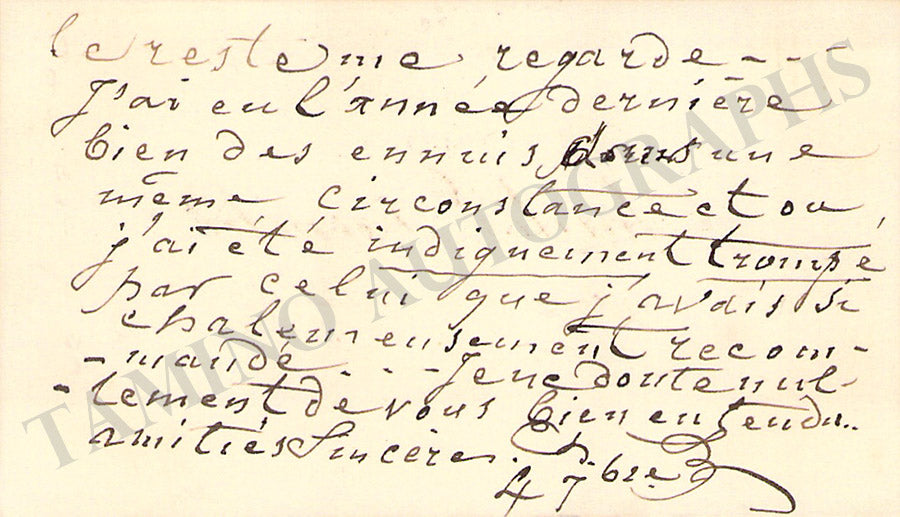 le reste me regarde - - -
J'ai eu l'année dernière
bien des ennuis dans une
même circonstance et ou
j'ai été indignement trompé
par celui que j'avais si
chaleureusement recom-
-mandé - - - Je ne doute nul-
-lement de vous bien entendu..
amitiés Sincères.
4 7bre
TAMINO AUTOGRAPHS